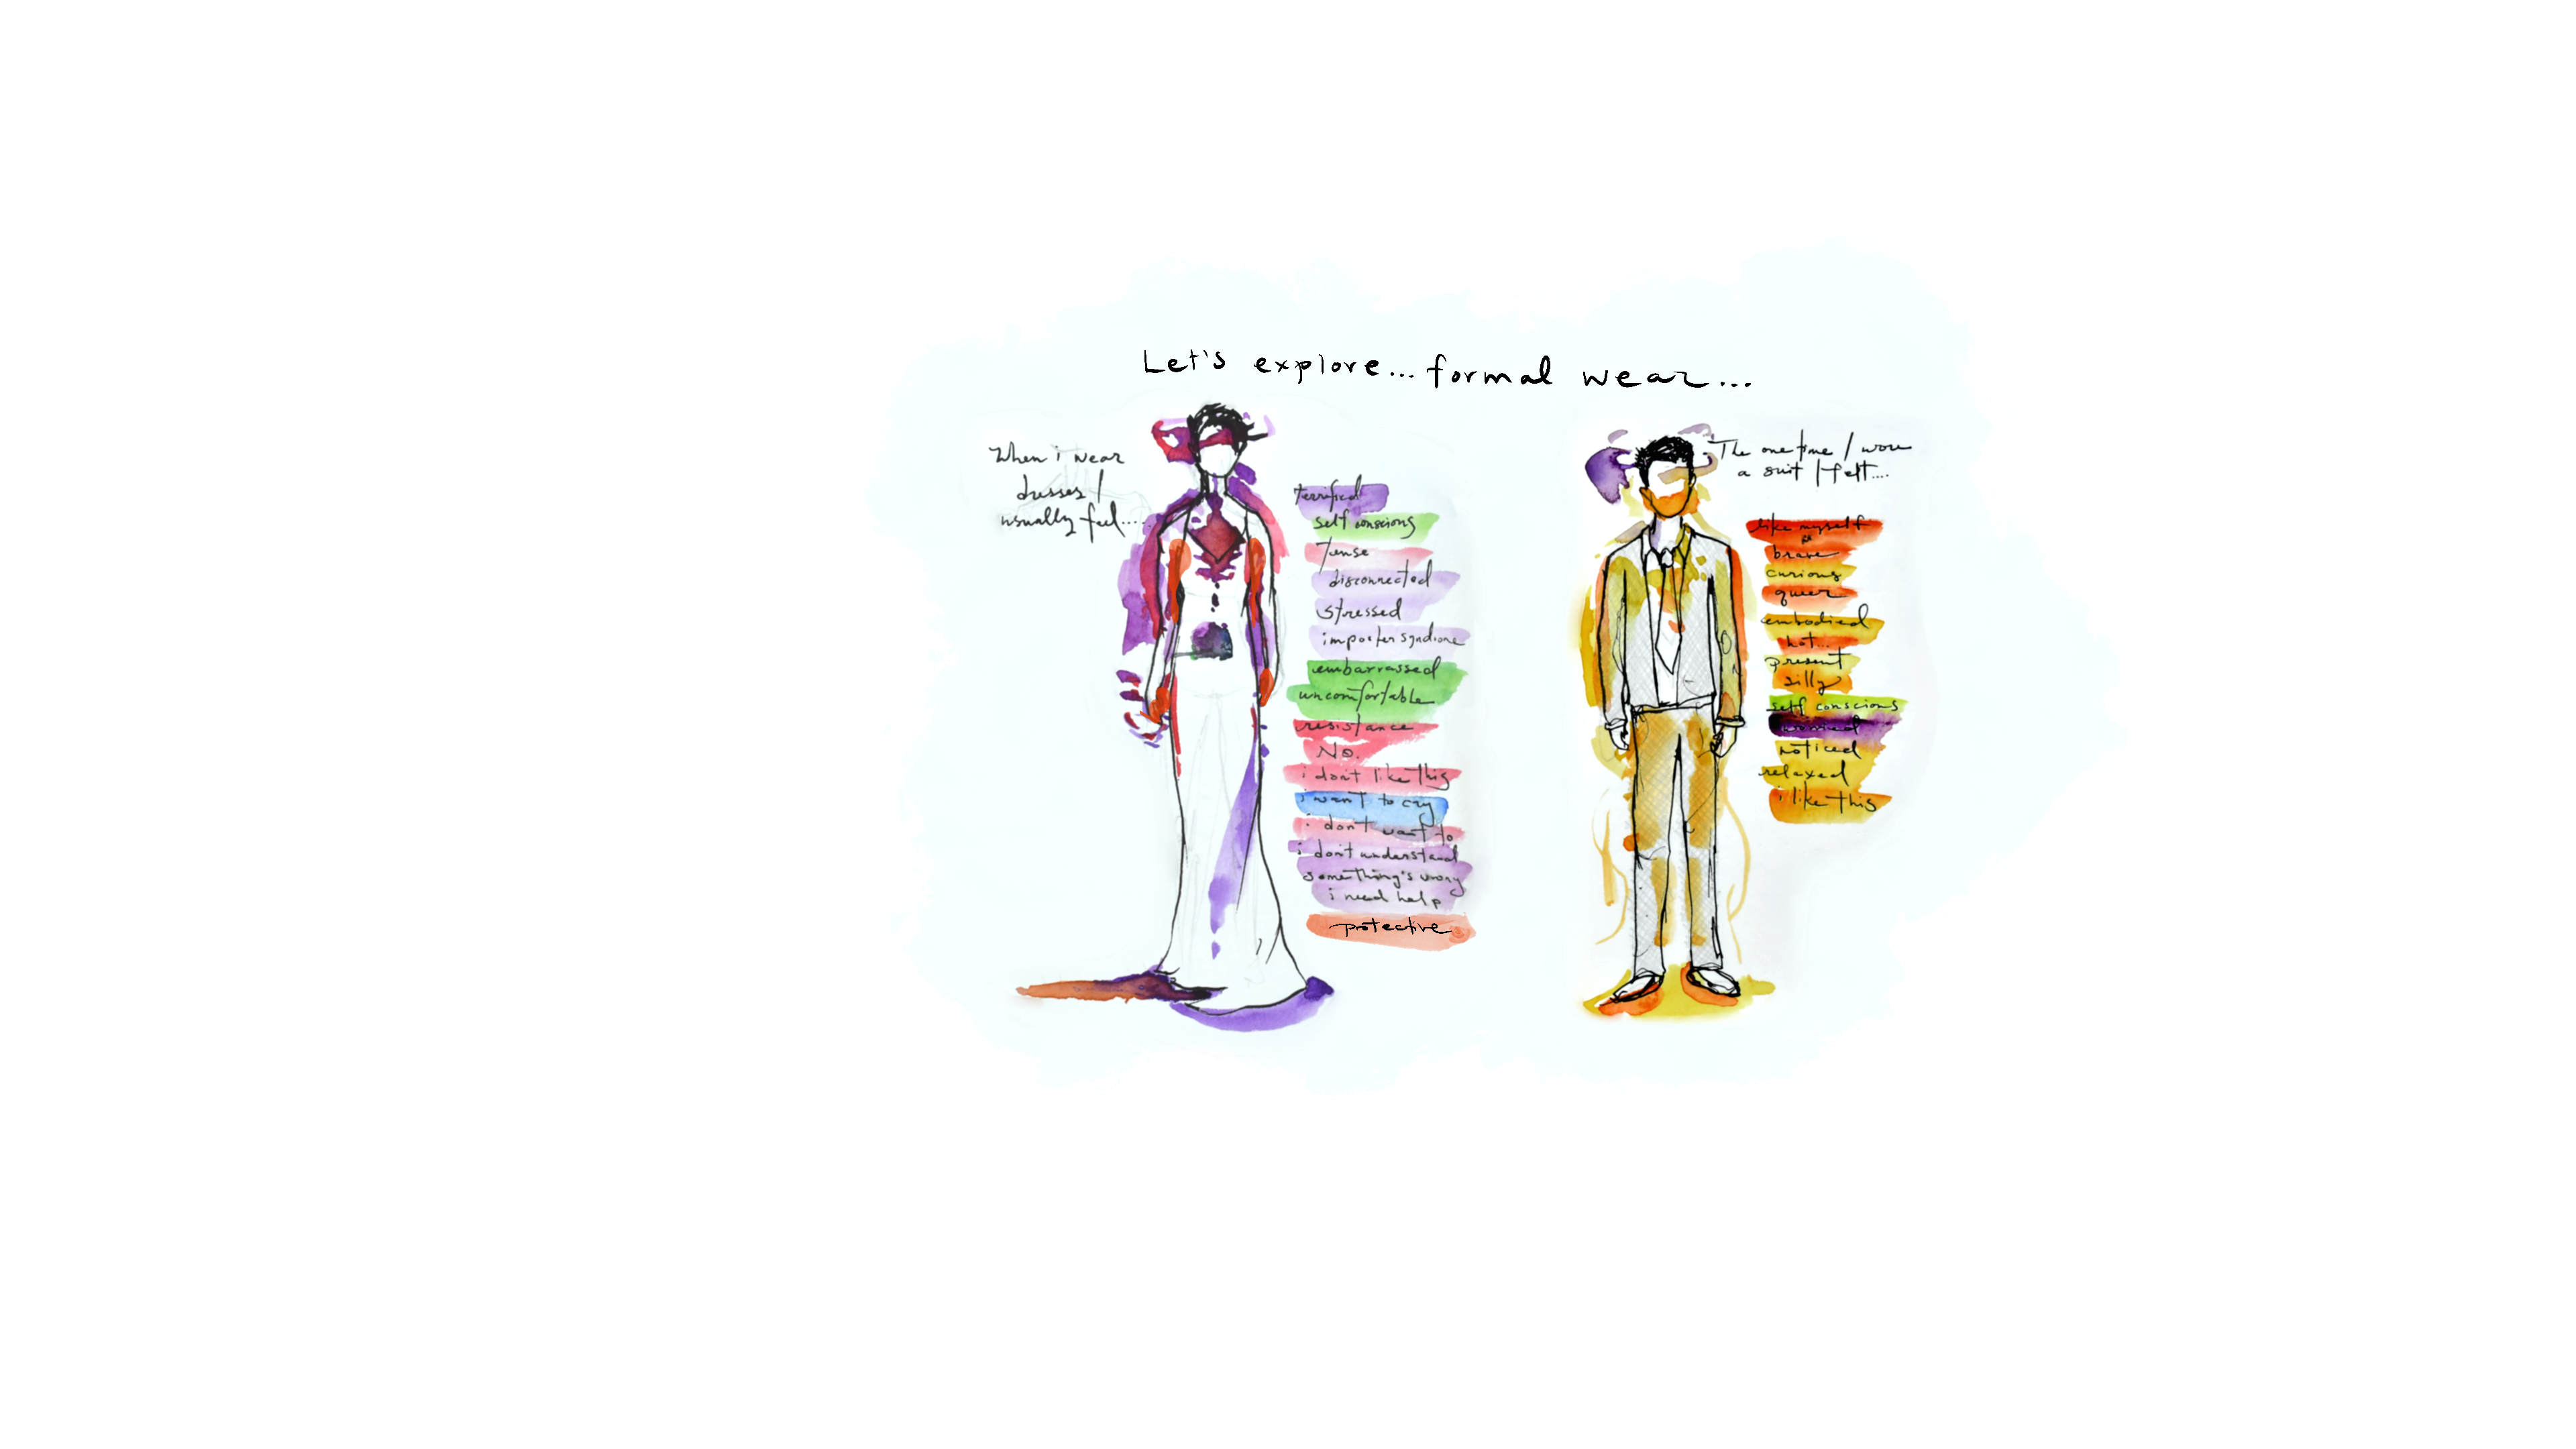 Let's explore... formal wear...
When i wear
dresses I
usually feel....
terrified
self conscious
Tense
disconnected
stressed
imposter syndrome
embarrassed
uncomfortable
resistance
No.
i don't like this
i want to cry
i don't want to
i don't understand
something's wrong
i need help
protective
The one time I wore
a suit I felt....
like myself
brave
curious
queer
embodied
hot...
present
silly
self conscious
worried
noticed
relaxed
i like this